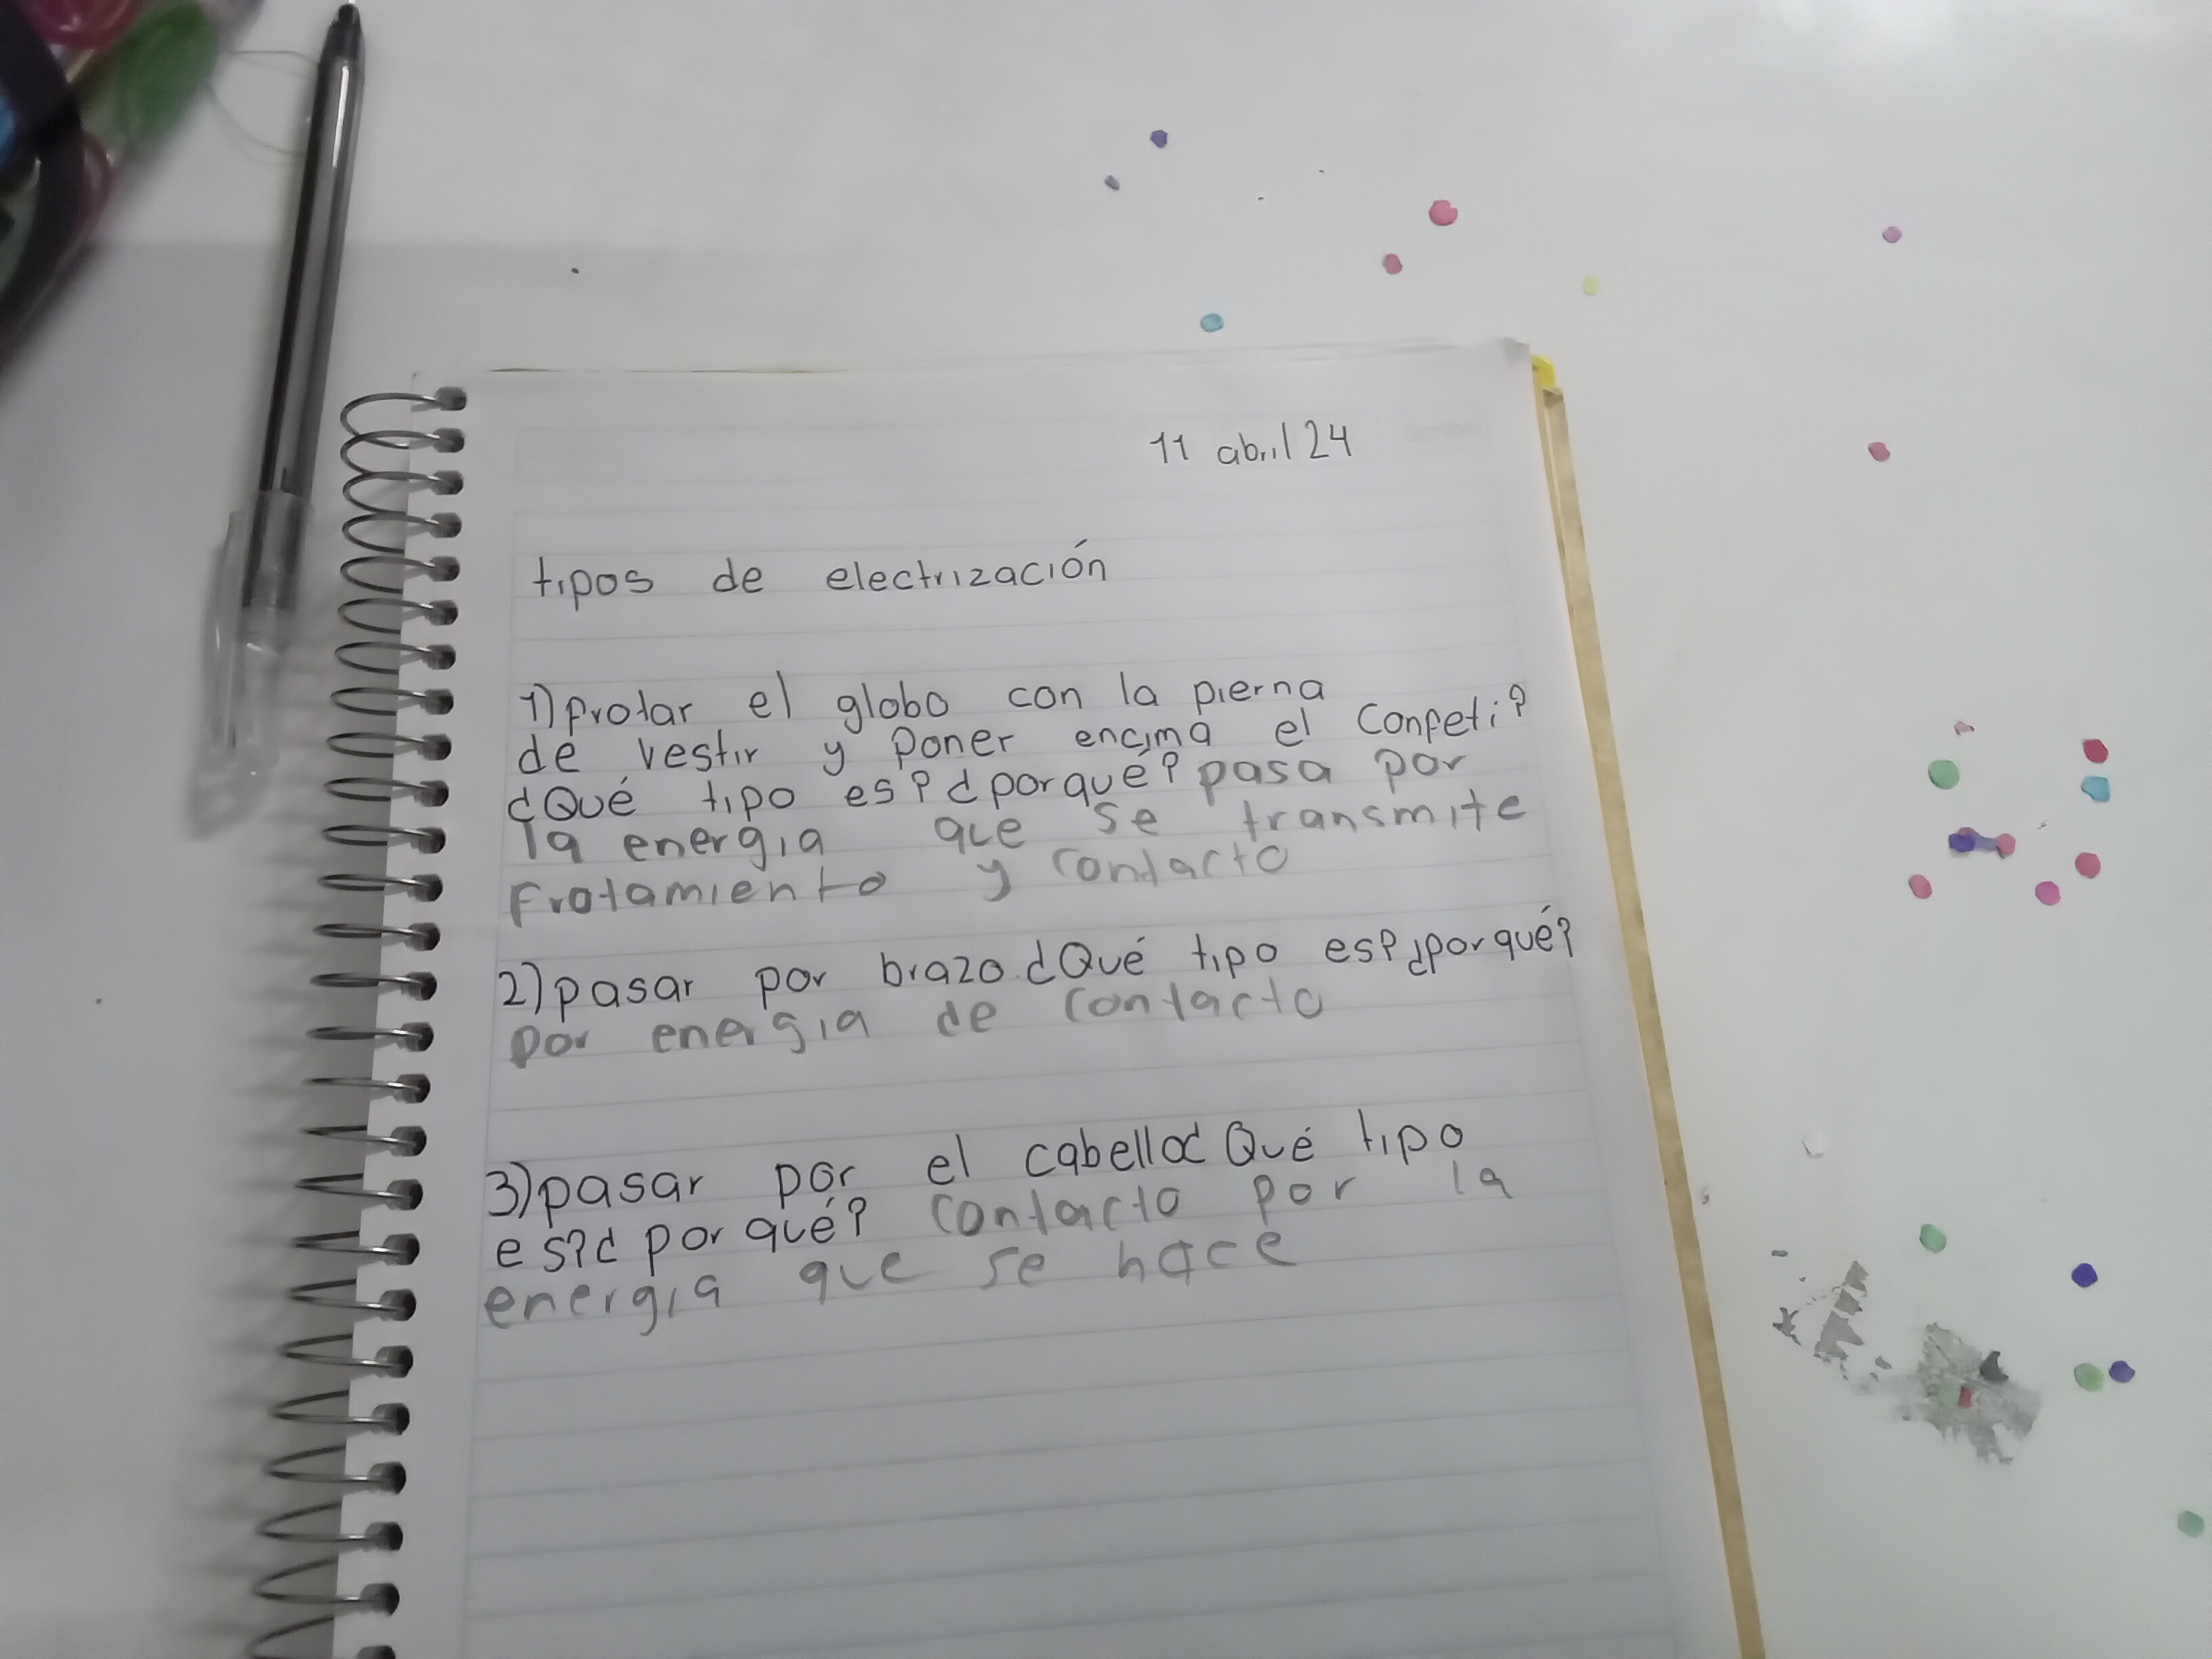 11 abril 24
tipos de electrización
1) frotar el globo con la pierna
de vestir y poner encima el confeti?
¿Qué tipo es? ¿porqué? pasa por
la energia que se transmite
Frotamiento y contacto
2) pasar por brazo. ¿Qué tipo es? ¿porqué?
por energia de contacto
3) pasar por el cabello ¿Qué tipo
es? ¿porqué? contacto por la
energia que se hace